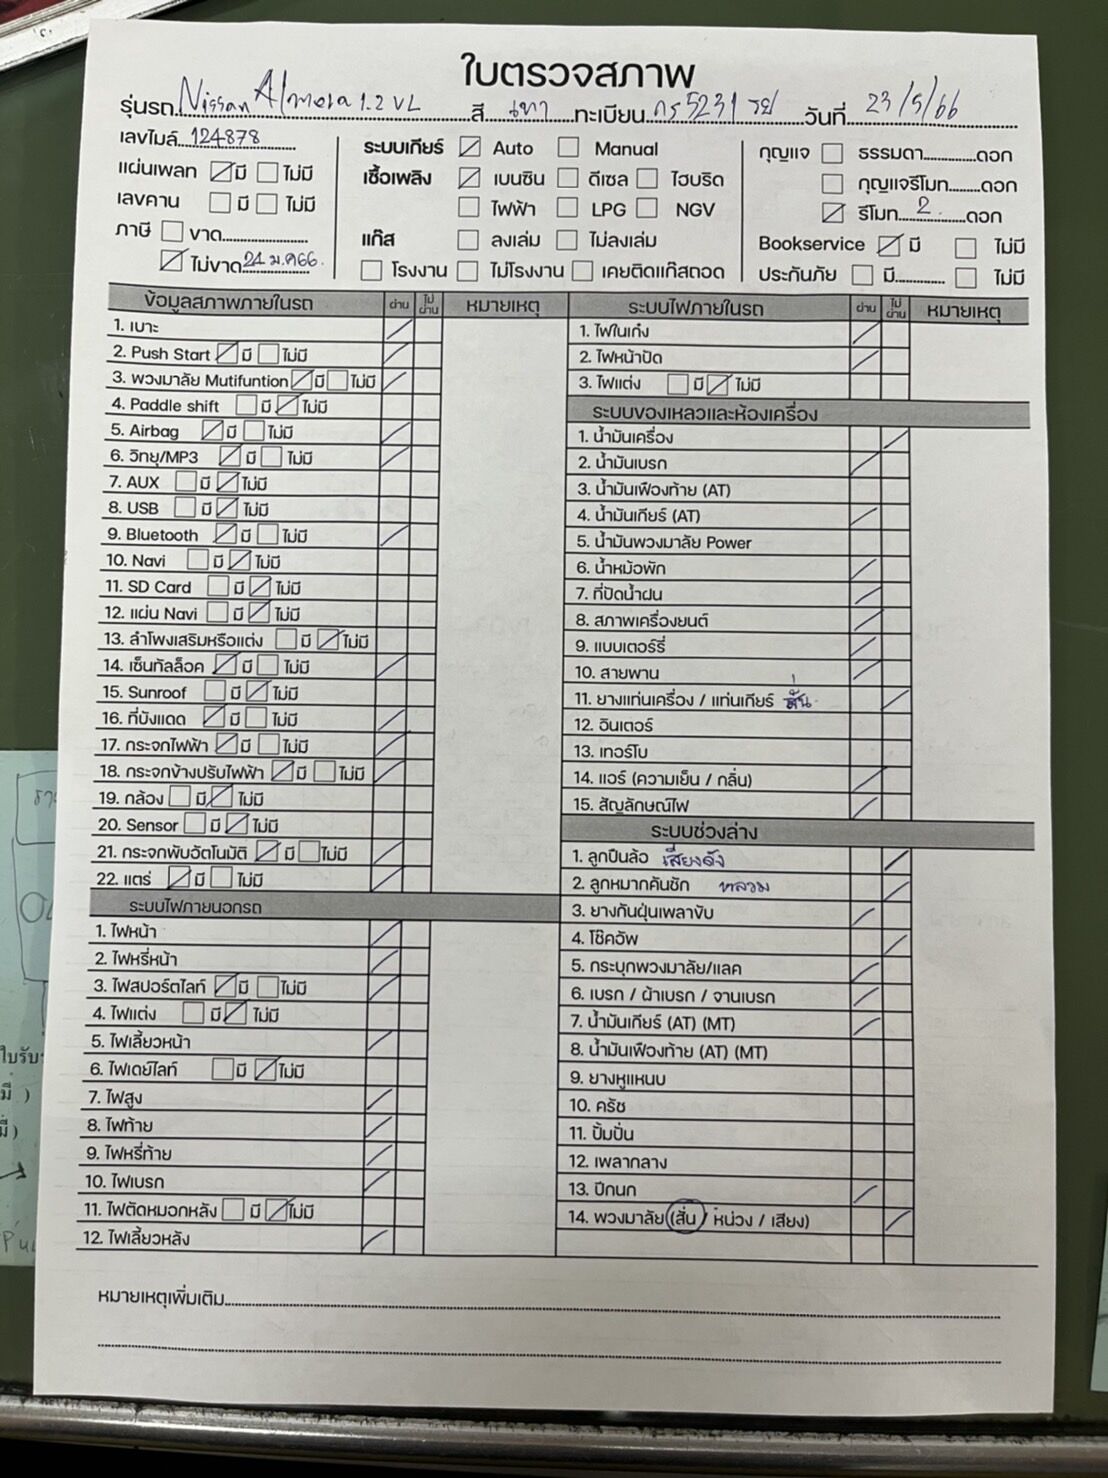 ใบตรวจสภาพ
รุ่นรถ Nissan Almera 1.2 VL สี เทา ทะเบียน กร 5231 รย วันที่ 23/5/66
เลขไมล์ 124878
แผ่นเพลท มี ไม่มี
เลขคาน มี ไม่มี
ภาษี ขาด
ไม่ขาด 24 ม.ค 66.
ระบบเกียร์ Auto Manual
เชื้อเพลิง เบนซิน ดีเซล ไฮบริด
ไฟฟ้า LPG NGV
แก๊ส ลงเล่ม ไม่ลงเล่ม
โรงงาน ไม่โรงงาน เคยติดแก๊สถอด
กุญแจ ธรรมดา ดอก
กุญแจรีโมท ดอก
รีโมท 2 ดอก
Bookservice มี ไม่มี
ประกันภัย มี ไม่มี
ข้อมูลสภาพภายในรถ ผ่าน ไม่ผ่าน หมายเหตุ
1. เบาะ
2. Push Start มี ไม่มี
3. พวงมาลัย Mutifuntion มี ไม่มี
4. Paddle shift มี ไม่มี
5. Airbag มี ไม่มี
6. วิทยุ/MP3 มี ไม่มี
7. AUX มี ไม่มี
8. USB มี ไม่มี
9. Bluetooth มี ไม่มี
10. Navi มี ไม่มี
11. SD Card มี ไม่มี
12. แผ่น Navi มี ไม่มี
13. ลำโพงเสริมหรือแต่ง มี ไม่มี
14. เซ็นทัลล็อค มี ไม่มี
15. Sunroof มี ไม่มี
16. ที่บังแดด มี ไม่มี
17. กระจกไฟฟ้า มี ไม่มี
18. กระจกข้างปรับไฟฟ้า มี ไม่มี
19. กล้อง มี ไม่มี
20. Sensor มี ไม่มี
21. กระจกพับอัตโนมัติ มี ไม่มี
22. แตร่ มี ไม่มี
ระบบไฟภายนอกรถ
1. ไฟหน้า
2. ไฟหรี่หน้า
3. ไฟสปอร์ตไลท์ มี ไม่มี
4. ไฟแต่ง มี ไม่มี
5. ไฟเลี้ยวหน้า
6. ไฟเดย์ไลท์ มี ไม่มี
7. ไฟสูง
8. ไฟท้าย
9. ไฟหรี่ท้าย
10. ไฟเบรก
11. ไฟตัดหมอกหลัง มี ไม่มี
12. ไฟเลี้ยวหลัง
ระบบไฟภายในรถ ผ่าน ไม่ผ่าน หมายเหตุ
1. ไฟในเก๋ง
2. ไฟหน้าปัด
3. ไฟแต่ง มี ไม่มี
ระบบของเหลวและห้องเครื่อง
1. น้ำมันเครื่อง
2. น้ำมันเบรก
3. น้ำมันเฟืองท้าย (AT)
4. น้ำมันเกียร์ (AT)
5. น้ำมันพวงมาลัย Power
6. น้ำหม้อพัก
7. ที่ปัดน้ำฝน
8. สภาพเครื่องยนต์
9. แบบเตอร์รี่
10. สายพาน
11. ยางแท่นเครื่อง / แท่นเกียร์ สั่น
12. อินเตอร์
13. เทอร์โบ
14. แอร์ (ความเย็น / กลิ่น)
15. สัญลักษณ์ไฟ
ระบบช่วงล่าง
1. ลูกปืนล้อ เสียงดัง
2. ลูกหมากคันชัก หลวม
3. ยางกันฝุ่นเพลาขับ
4. โช๊คอัพ
5. กระบุกพวงมาลัย/แลค
6. เบรก / ผ้าเบรก / จานเบรก
7. น้ำมันเกียร์ (AT) (MT)
8. น้ำมันเฟืองท้าย (AT) (MT)
9. ยางหูแหนบ
10. ครัช
11. ปั้มปั่น
12. เพลากลาง
13. ปีกนก
14. พวงมาลัย (สั่น / หน่วง / เสียง)
หมายเหตุเพิ่มเติม